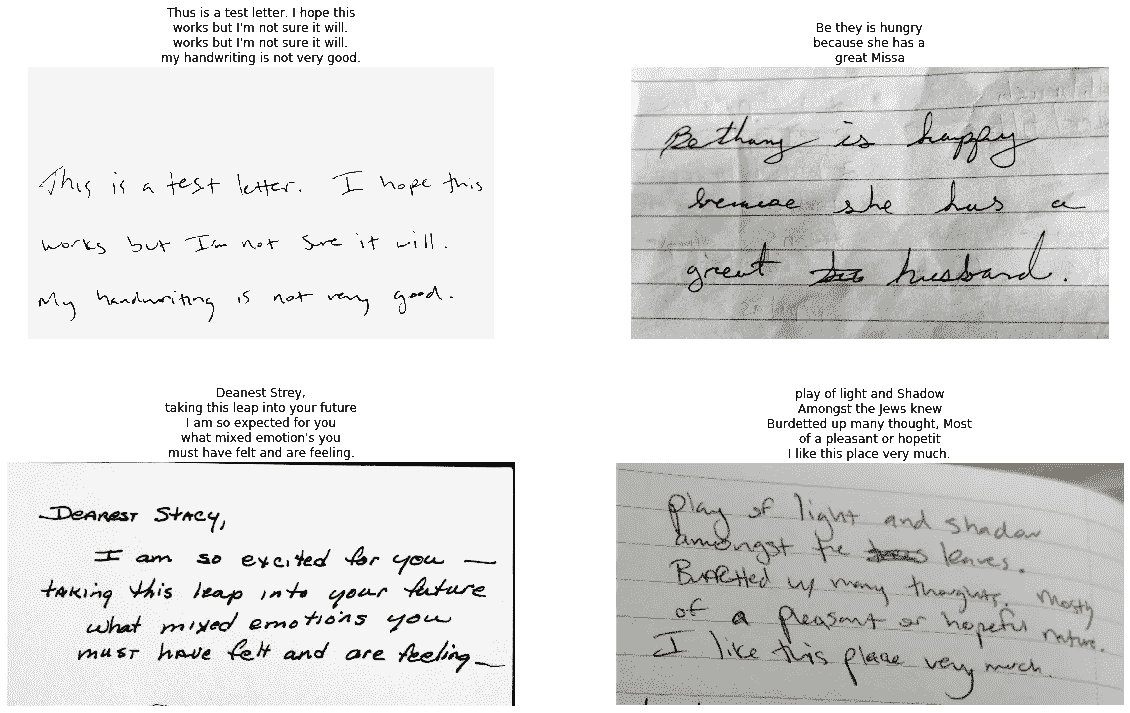 Thus is a test letter. I hope this
works but I'm not sure it will.
works but I'm not sure it will.
my handwriting is not very good.
This is a test letter. I hope this
works but I'm not sure it will.
My handwriting is not very good.
Be they is hungry
because she has a
great Missa
Bethany is happy
because she has a
great husband.
Deanest Strey,
taking this leap into your future
I am so expected for you
what mixed emotion's you
must have felt and are feeling.
DEAREST STACY,
I am so excited for you —
taking this leap into your future
what mixed emotions you
must have felt and are feeling_
play of light and Shadow
Amongst the Jews knew
Burdetted up many thought, Most
of a pleasant or hopetit
I like this place very much.
play of light and shadow
amongst the leaves.
up many thoughts, mostly
of a pleasant or hopeful nature.
I like this place very much.